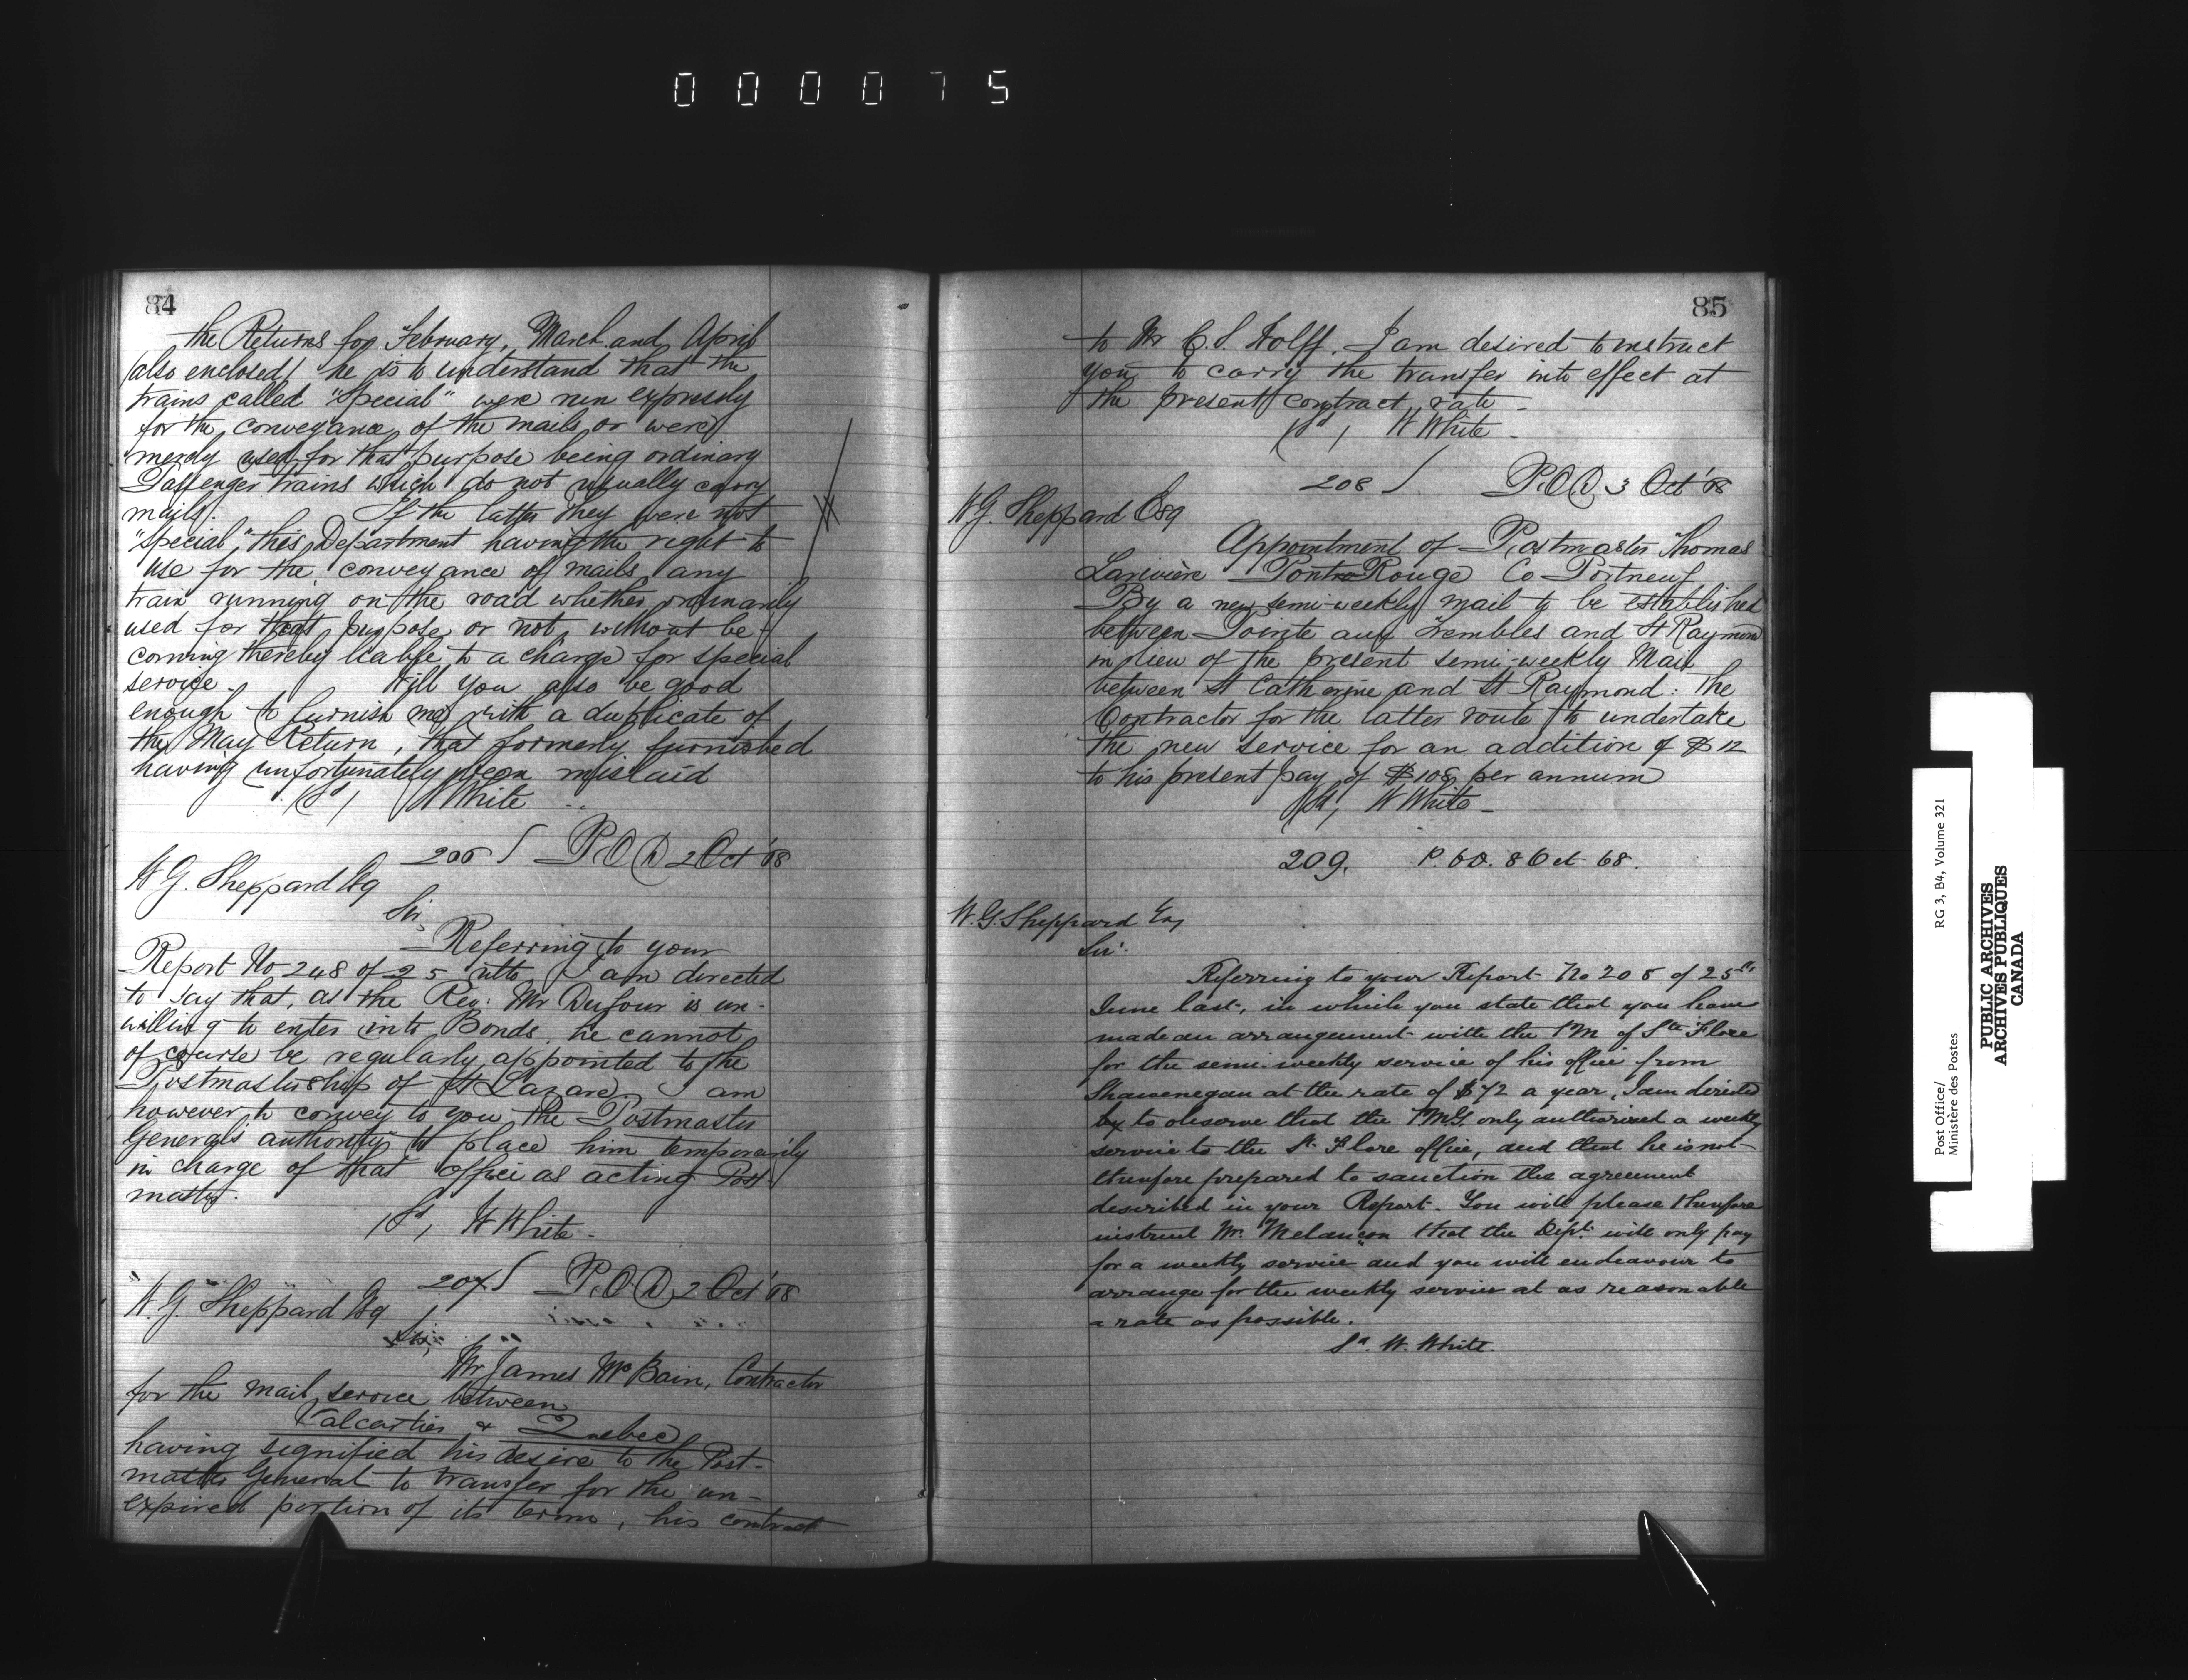 000075
84
the Returns for February, March and April
(also enclosed) he is to understand that the
trains called "Special" were run expressly
for the conveyance of the mails or were
merely used for that purpose being ordinary
Passenger trains which do not usually carry
mails. If the latter they were not
"special", this Department having the right to
use for the conveyance of mails any
train running on the road whether ordinarily
used for that purpose or not, without be-
coming thereby liable to a charge for special
service. Will you also be good
enough to furnish me with a duplicate of
the May Return, that formerly furnished
having unfortunately been mislaid
(Sd) W White
206 P.O.D 2 Oct '68
W G. Sheppard Esq
Sir,
Referring to your
Report No 248 of 25 ulto I am directed
to say that, as the Rev: Mr Dufour is un-
willing to enter into Bonds, he cannot
of course be regularly appointed to the
Postmastership of St Lazare. I am
however to convey to you the Postmaster
General's authority to place him temporarily
in charge of that office as acting Post-
master.
(Sd) W White.
207 P.O.D 2 Oct '68
W. G. Sheppard Esq
Sir,
Mr James McBain, Contractor
for the mail service between
Valcartier & Quebec
having signified his desire to the Post-
master General to transfer for the un-
expired portion of its term, his contract
85
to Mr C. S. Wolff. I am desired to instruct
you to carry the transfer into effect at
the present contract rate.
(Sd) W White.
208 P.O.D 3 Oct '68
W G. Sheppard Esq
Appointment of Postmaster Thomas
Larivière Pont Rouge Co Portneuf
By a new semi-weekly mail to be established
between Pointe aux Trembles and St Raymond
in lieu of the present semi-weekly Mail
between St Catherine and St Raymond: The
Contractor for the latter route to undertake
the new service for an addition of $12
to his present pay of $108 per annum
(Sd) W White-
209. P.O.D. 8 Oct 68.
W. G. Sheppard Esq
Sir.
Referring to your Report No 208 of 25th
June last, in which you state that you have
made an arrangement with the PM of Ste Flore
for the semi-weekly service of his office from
Shawenegan at the rate of $72 a year, I am directed
by to observe that the PMG. only authorized a weekly
service to the St. Flore office, and that he is not
therefore prepared to sanction the agreement
described in your Report. You will please therefore
instruct Mr. Melançon that the Dept. will only pay
for a weekly service and you will endeavour to
arrange for the weekly service at as reasonable
a rate as possible.
Sd. W. White.
Post Office/
Ministère des Postes
RG 3, B4, Volume 321
PUBLIC ARCHIVES
ARCHIVES PUBLIQUES
CANADA